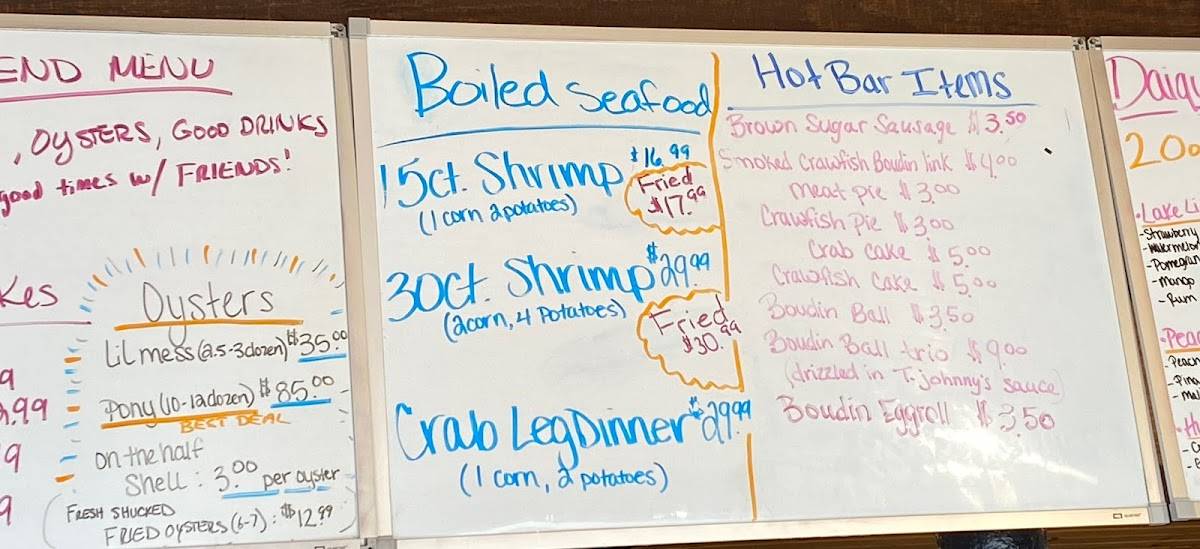 END MENU
, OYSTERS, GOOD DRINKS
good times w/ FRIENDS!
kes
Oysters
Lil mess (2.5-3 dozen) $35.00
Pony (10-12 dozen) $85.00
BEST DEAL
on the half
Shell: 3.00 per oyster
FRESH SHUCKED
FRIED OYSTERS (6-7): $12.99
9
.99
9
9
Boiled Seafood
15ct. Shrimp $16.99
(1 corn 2 potatoes)
Fried
$17.99
30ct. Shrimp $29.99
(2 corn, 4 Potatoes)
Fried
$30.99
Crab Leg Dinner $29.99
(1 corn, 2 potatoes)
Hot Bar Items
Brown Sugar Sausage $3.50
Smoked Crawfish Boudin link $4.00
meat pie $3.00
Crawfish Pie $3.00
Crab cake $5.00
Crawfish Cake $5.00
Boudin Ball $3.50
Boudin Ball trio $9.00
(drizzled in T. Johnny's sauce)
Boudin Eggroll $3.50
Daiq
20o
• Lake Li
- Strawberry
- Watermelon
- Pomegran
- mango
- Rum
• Peac
- Peach
- Pina